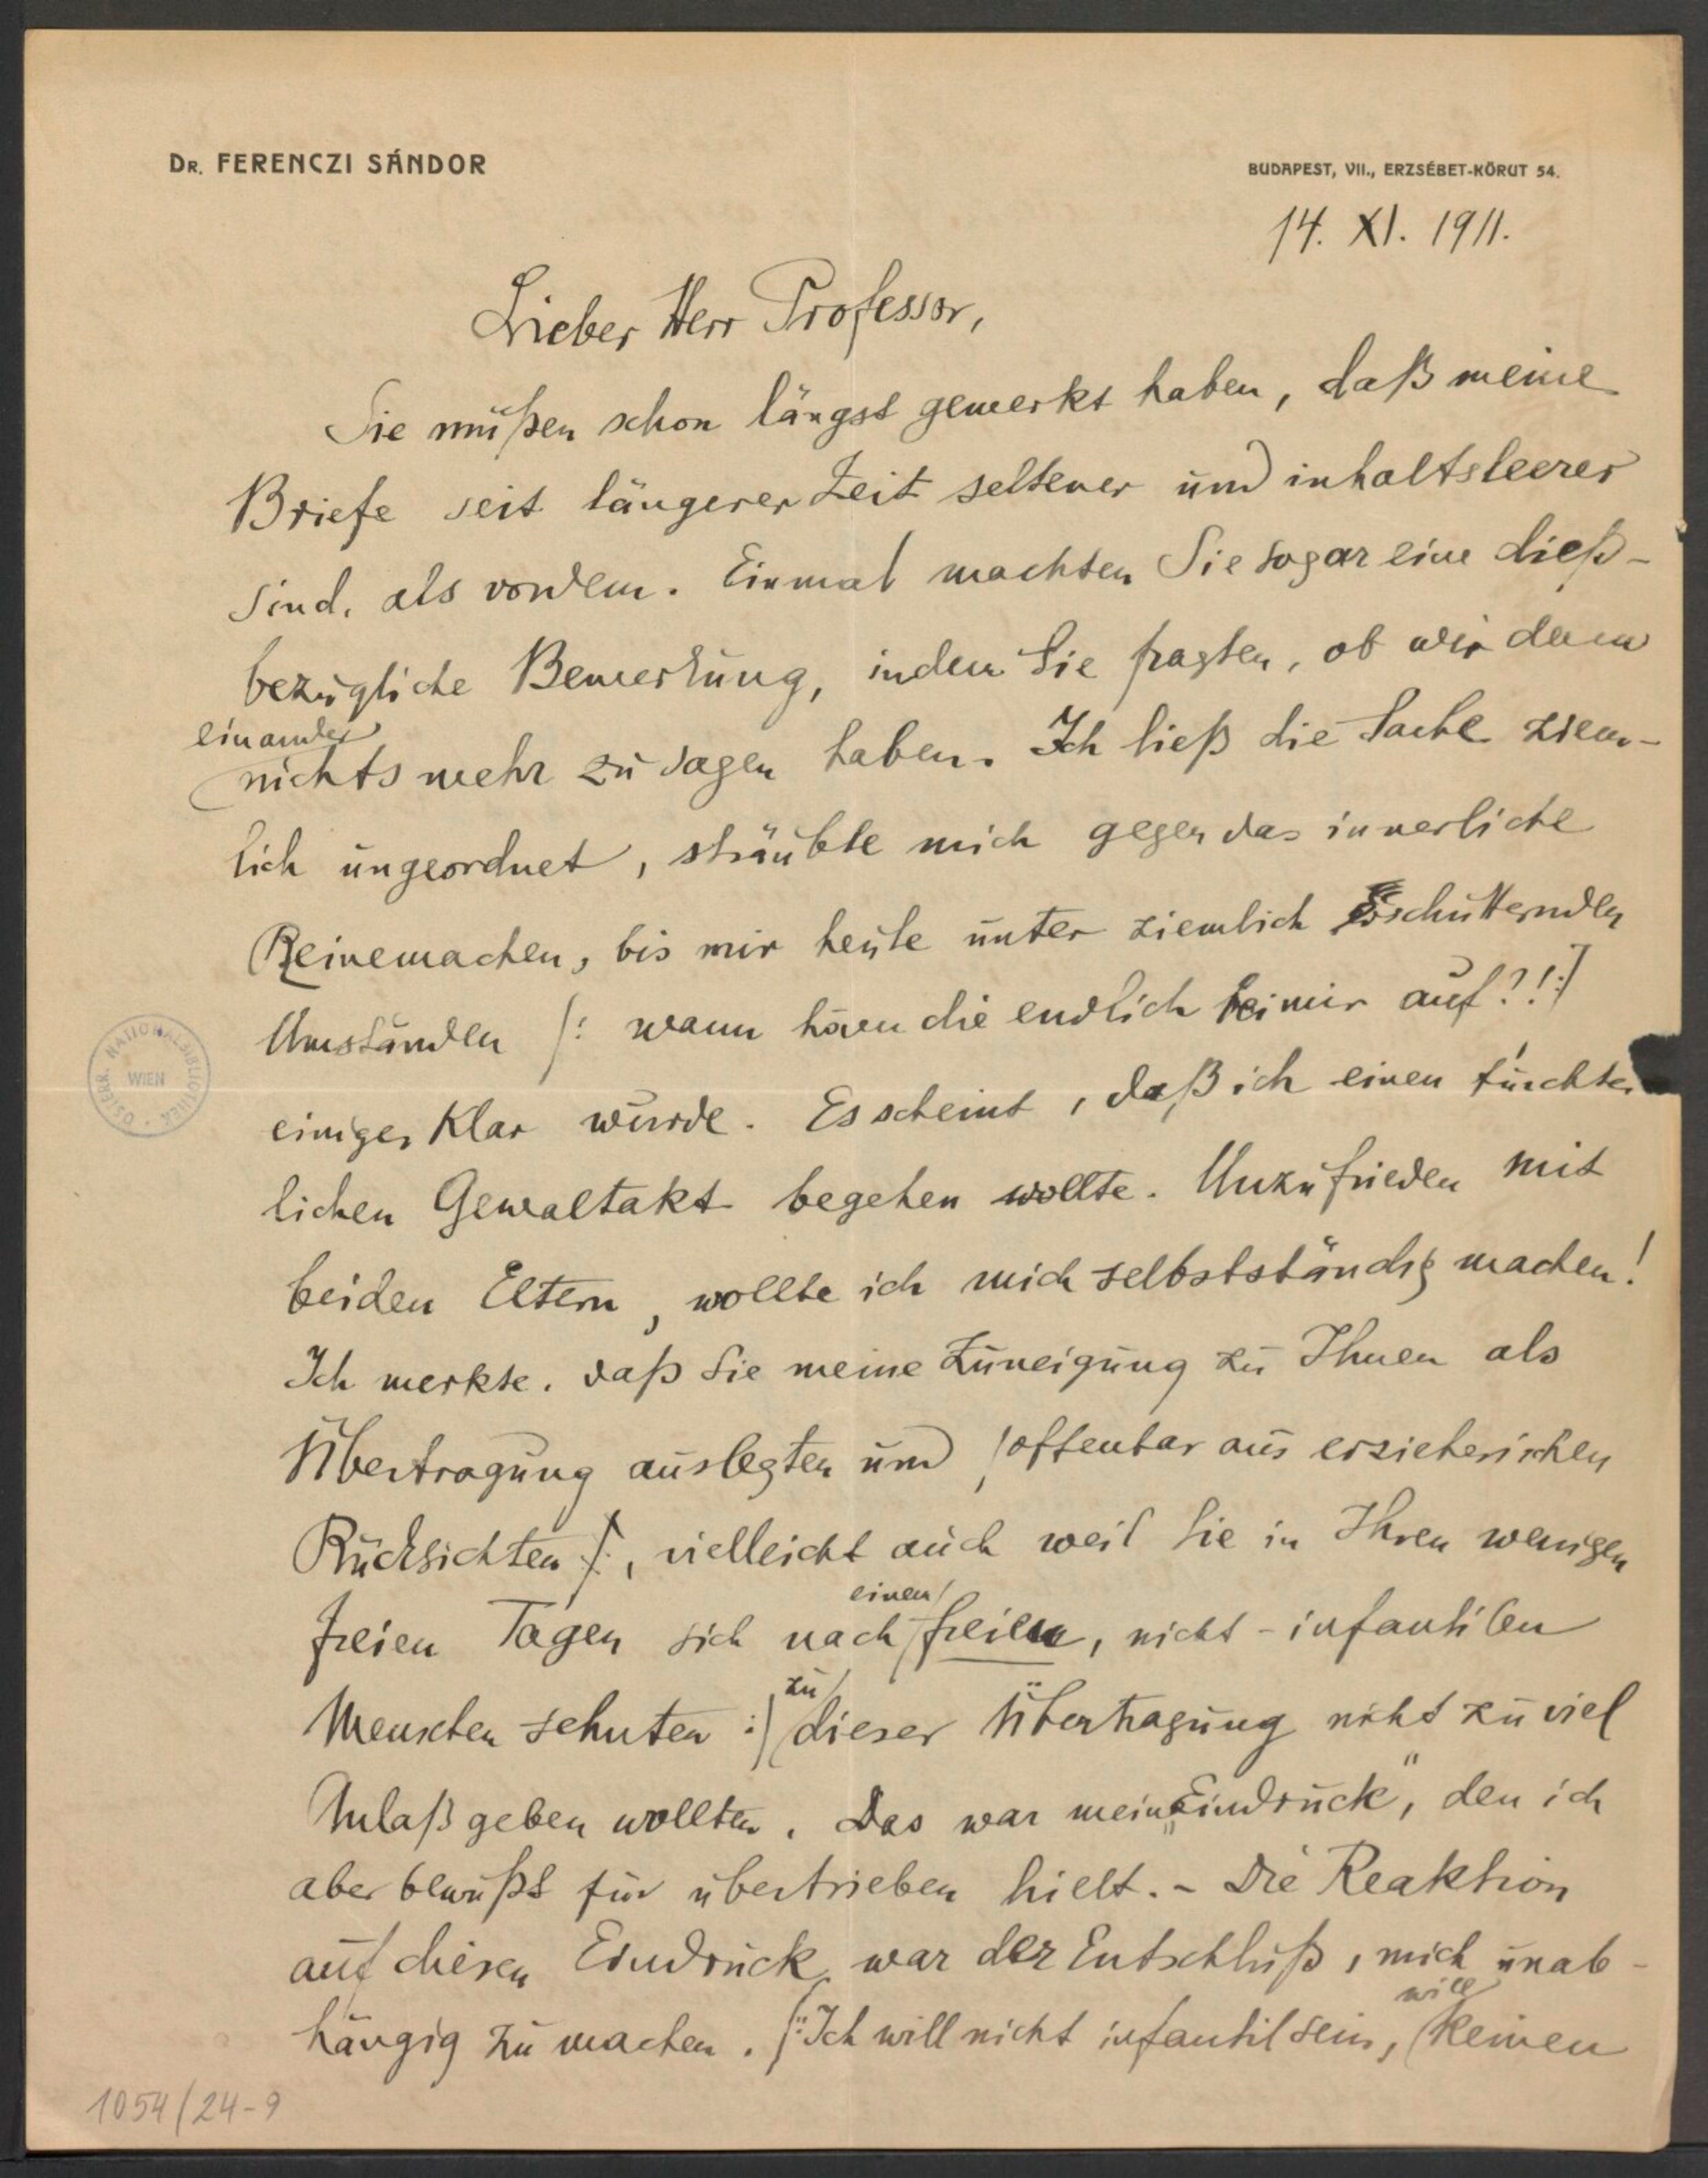 Dr. FERENCZI SÁNDOR
BUDAPEST, VII., ERZSÉBET-KÖRUT 54.
14. XI. 1911.
Lieber Herr Professor,
Sie müßen schon längst gemerkt haben, daß meine
Briefe seit längerer Zeit seltener und inhaltsleerer
sind, als vordem. Einmal machten Sie sogar eine dieß-
bezügliche Bemerkung, indem Sie fragten, ob wir denn
einander
nichts mehr zu sagen haben. Ich ließ die Sache ziem-
lich ungeordnet, sträubte mich gegen das innerliche
Reinemachen, bis mir heute unter ziemlich erschütternden
Umständen /: wann hören die endlich bei mir auf?!:/
einiges klar wurde. Es scheint, daß ich einen fürchter
lichen Gewaltakt begehen wollte. Unzufrieden mit
beiden Eltern, wollte ich mich selbstständig machen!
Ich merkte, daß Sie meine Zuneigung zu Ihnen als
Übertragung auslegten und /offenbar aus erzieherischen
Rücksichten /:, vielleicht auch weil Sie in Ihren wenigen
einem
freien Tagen sich nach freien, nicht-infantilen
zu
Menschen sehnten :/ dieser Übertragung nicht zu viel
Anlaß geben wollten. Das war mein „Eindruck", den ich
aber bewußt für übertrieben hielt. - Die Reaktion
auf diesen Eindruck war der Entschluß, mich unab-
will
hängig zu machen. /: Ich will nicht infantil sein, keinen
ÖSTERR. NATIONALBIBLIOTHEK
WIEN
1054/24-9